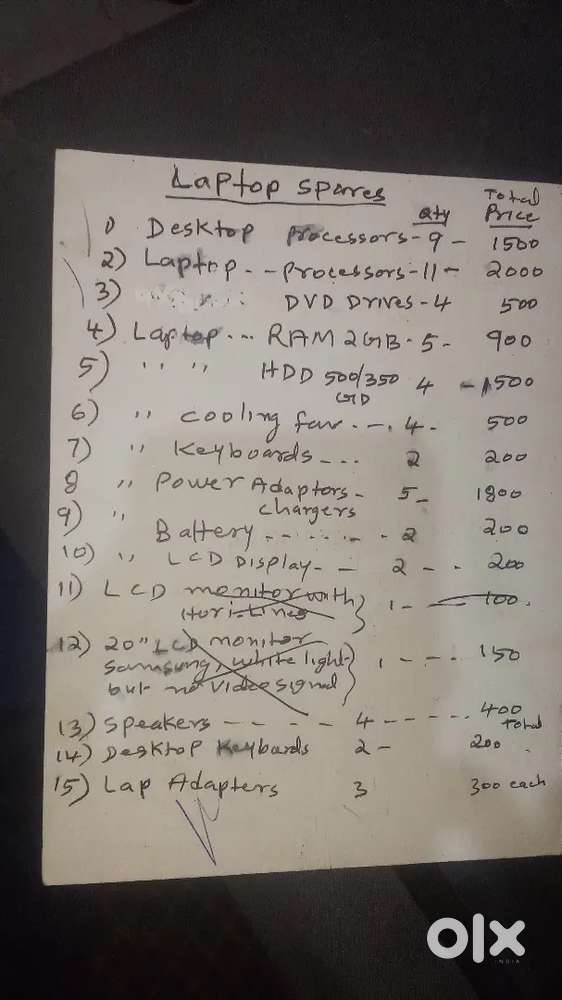 Laptop Spares
Qty Total Price
1) Desktop Processors - 9 - 1500
2) Laptop - - Processors - 11 - 2000
3) DVD Drives - 4 500
4) Laptop ... RAM 2GB - 5 - 900
5) " " HDD 500/350 GB 4 - 1500
6) " Cooling fan - - . 4 - 500
7) " Keyboards - - - 2 200
8 " Power Adaptors - 5 - 1800
chargers
9) " Battery - - - - - - 2 200
10) " LCD Display - - - 2 - - 200
11) LCD monitor with } 1 - 100
Hori-Lines
12) 20" LCD monitor
Samsung, white light } 1 - - - - 150
but no video signal
13) Speakers - - - - - 4 - - - - - 400
Total
14) Desktop Keyboards 2 - 200
15) Lap Adapters 3 300 each
olx
INDIA